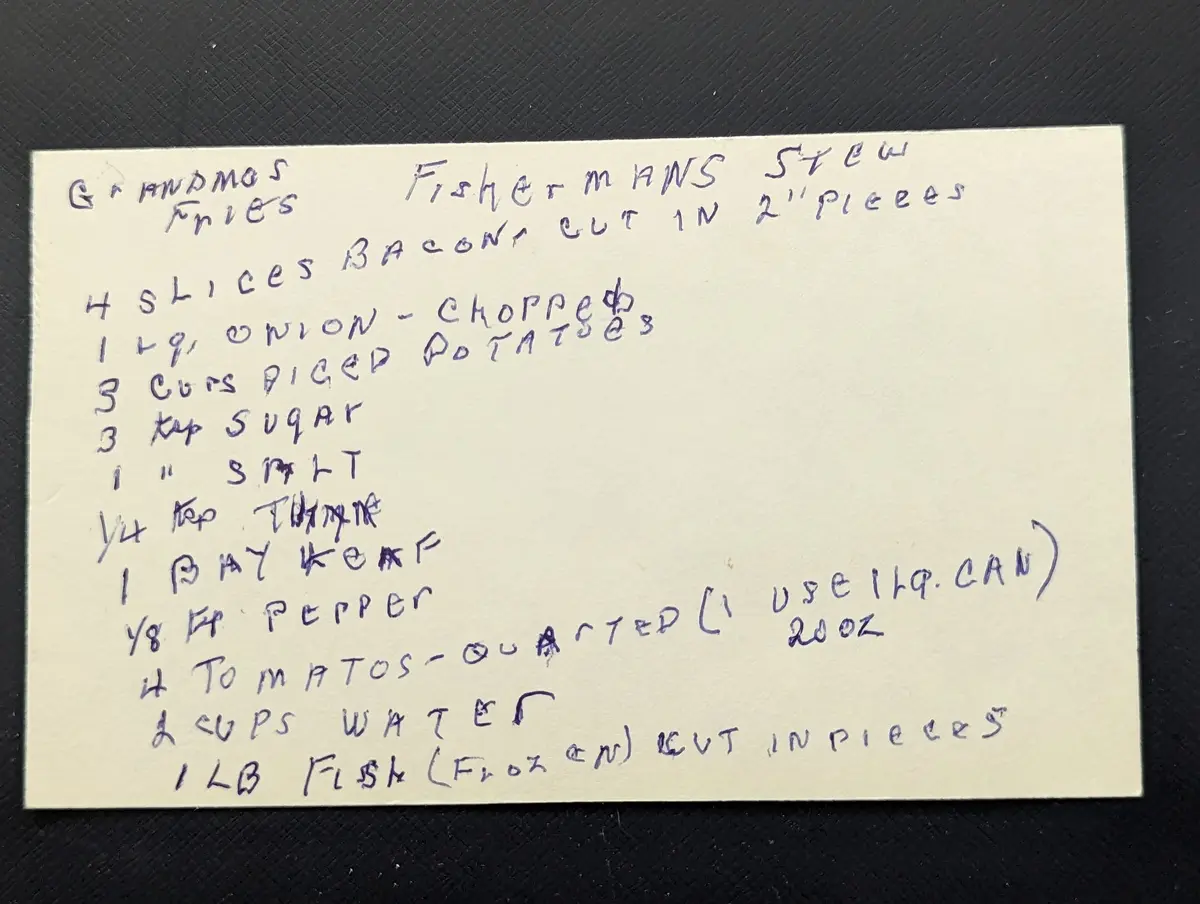 GrANDMOS FISHErMANS STEW
FriES
4 SLICES BACON, CUT IN 2" PIECES
1 Lg. ONION - CHOPPED
3 CUPS DICED POTATOES
3 tsp SUgAr
1 " SALT
1/4 tsp THYME
1 BAY LEAF
1/8 tsp PEPPEr
4 TOMATOS - QUArTED (I USE 1 Lg. CAN)
20 OZ
2 CUPS WATEr
1 LB FISH (FrOZEN) CUT IN PIECES